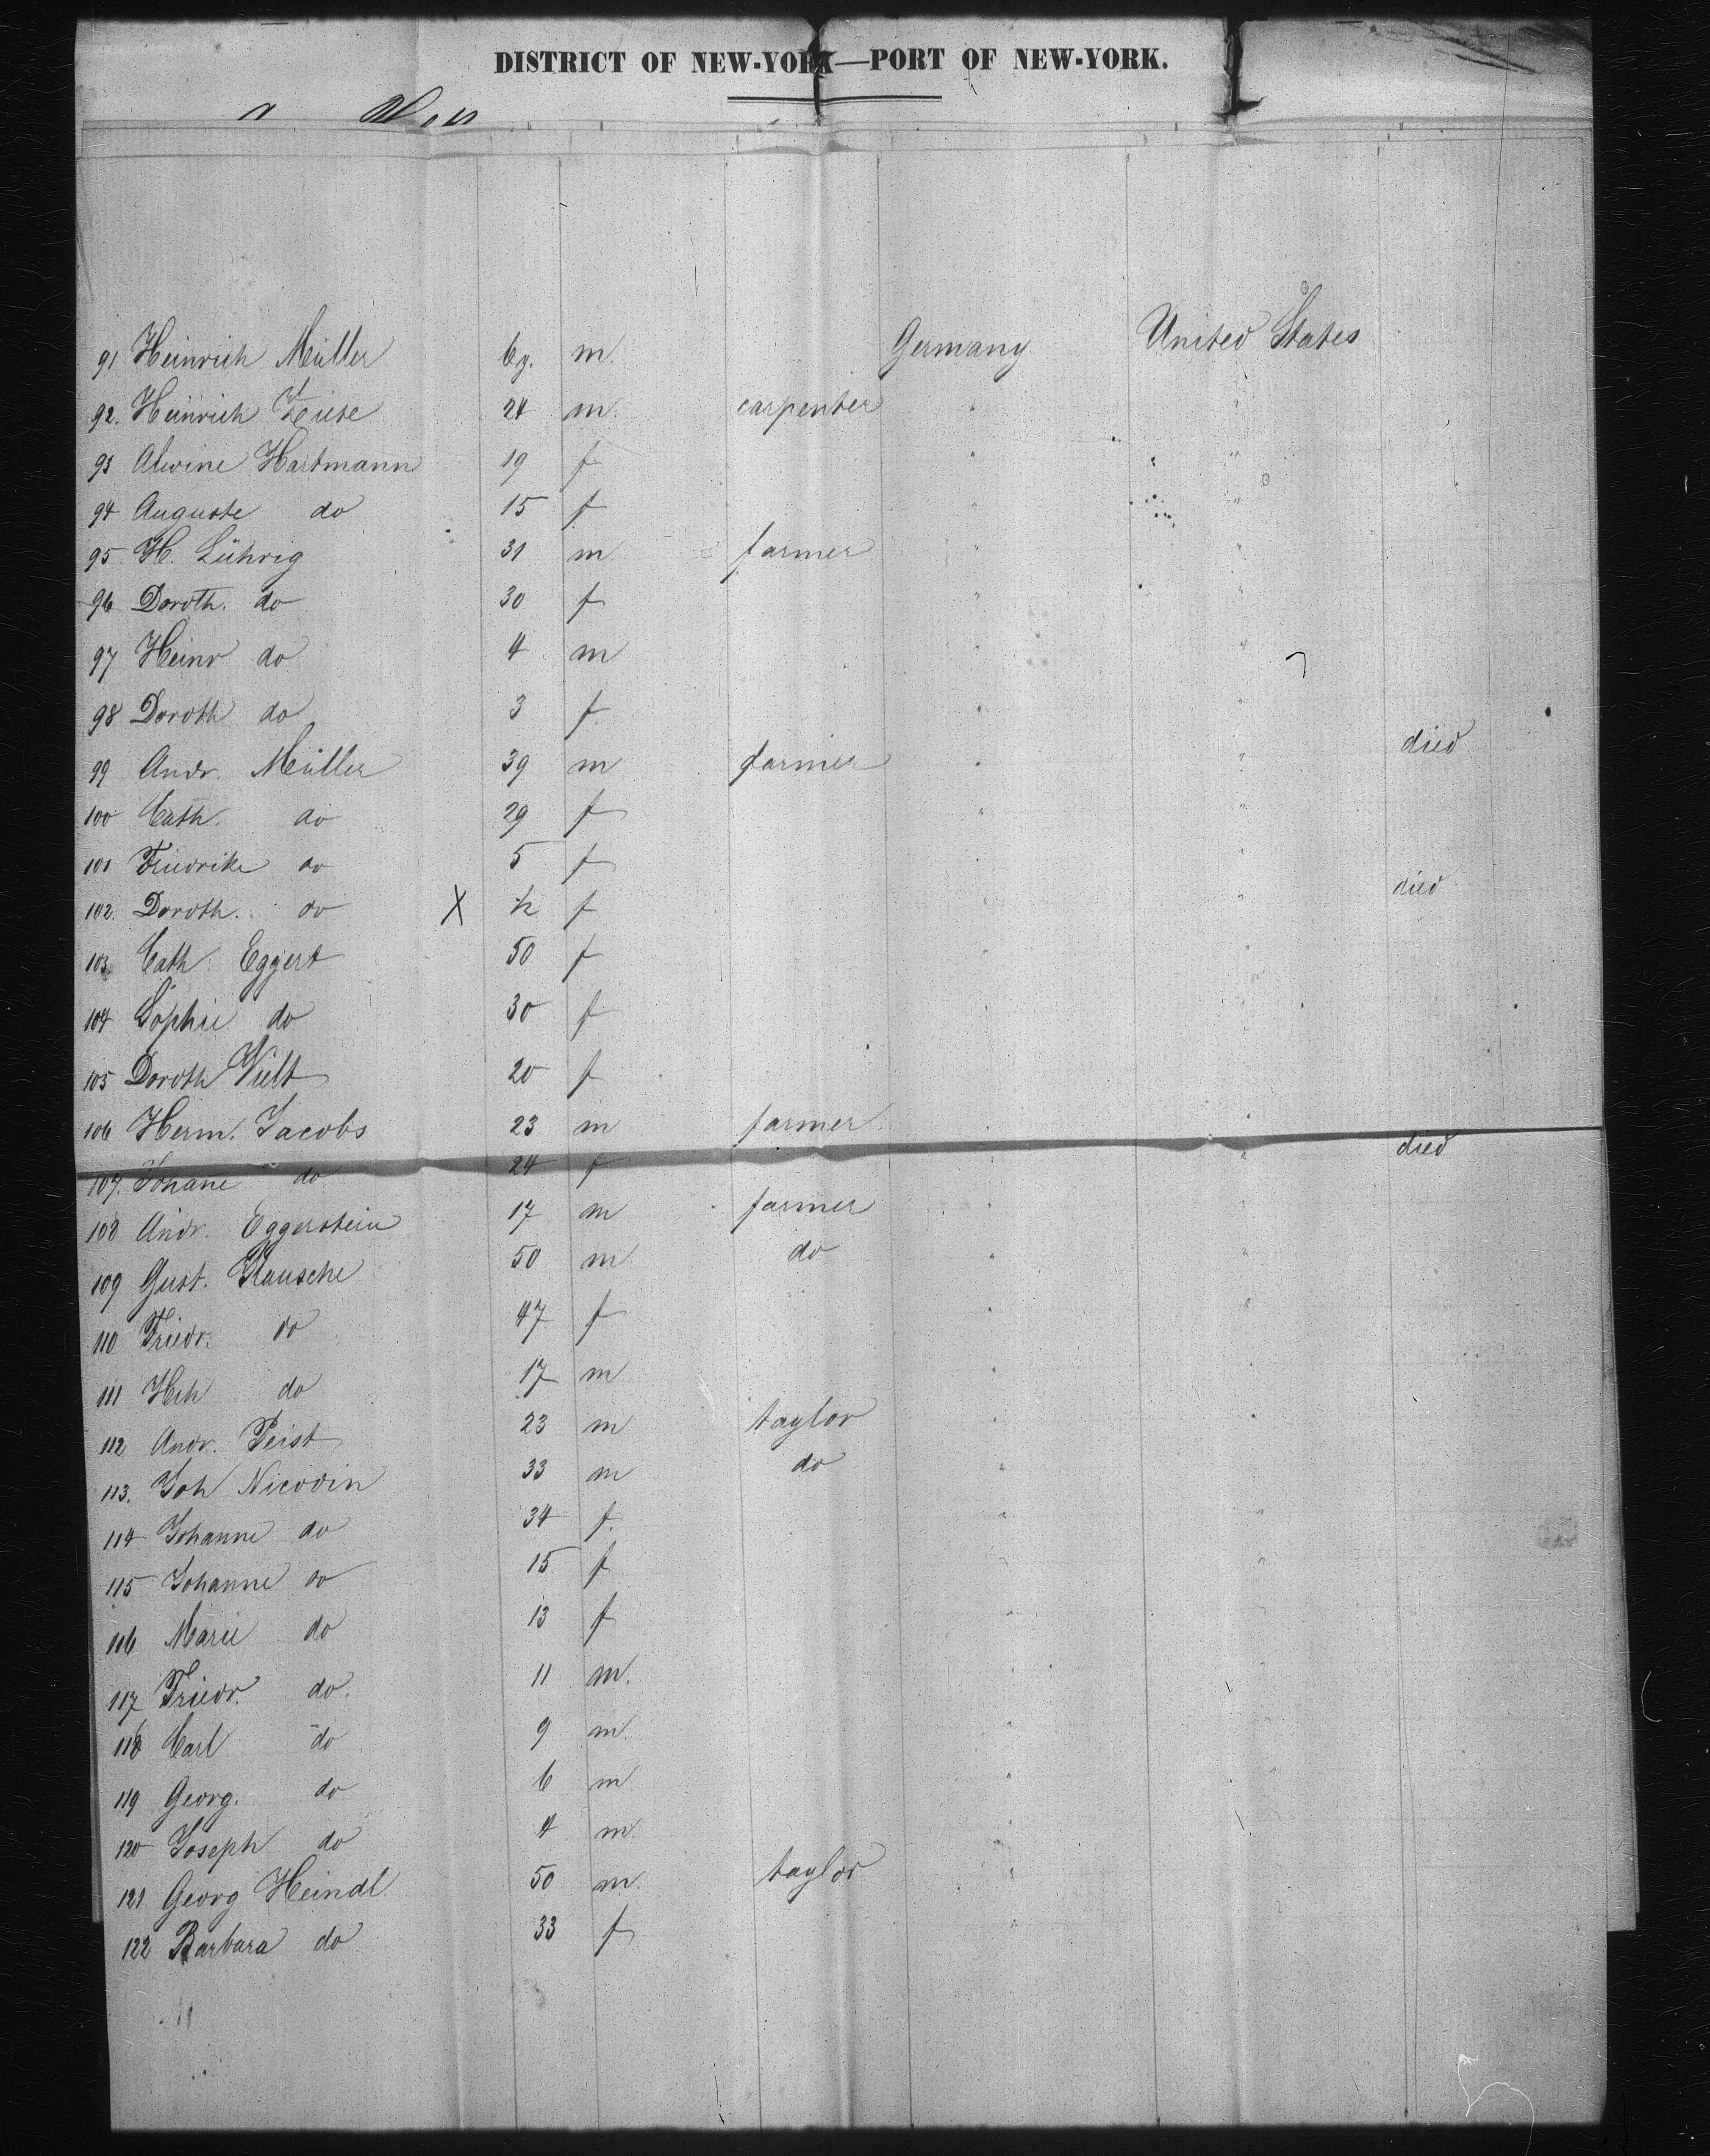 DISTRICT OF NEW-YORK—PORT OF NEW-YORK.
91 Heinrich Müller 6y. m. Germany United States
92. Heinrich 24 m. carpenter " "
93 Alwine Hartmann 19 f " "
94 Auguste do 15 f " "
95 H. Lührig 31 m. farmer " "
96 Doroth. do 30 f " "
97 Heinr do 4 m " "
98 Doroth do 3 f " "
99 Andr. Müller 39 m farmer " " died
100 Cath. do 29 f " "
101 Friedrike do 5 f "
102. Doroth. do X ½ f " " died
103. Cath. Eggert 50 f " "
104 Sophie do 30 f " "
105 Doroth Vielt 20 f
106 Herm. Jacobs 23 m farmer. " "
107. Johane do 24 f " died
108 Andr. Eggerstein 17 m farmer " "
109 Gust. Kausche 50 m do " "
110 Friedr. do 47 f "
111 Hch do 17 m "
112 Andr. Peist 23 m taylor " "
113. Joh Nicodin 33 m do "
114 Johanne do 34 f. " "
115 Johanne do 15 f " "
116 Marie do 13 f "
117 Friedr. do. 11 m. "
118 Carl do 9 m. "
119 Georg. do 6 m " "
120 Joseph do 4 m. "
121 Georg Heindl 50 m. taylor "
122 Barbara do 33 f "